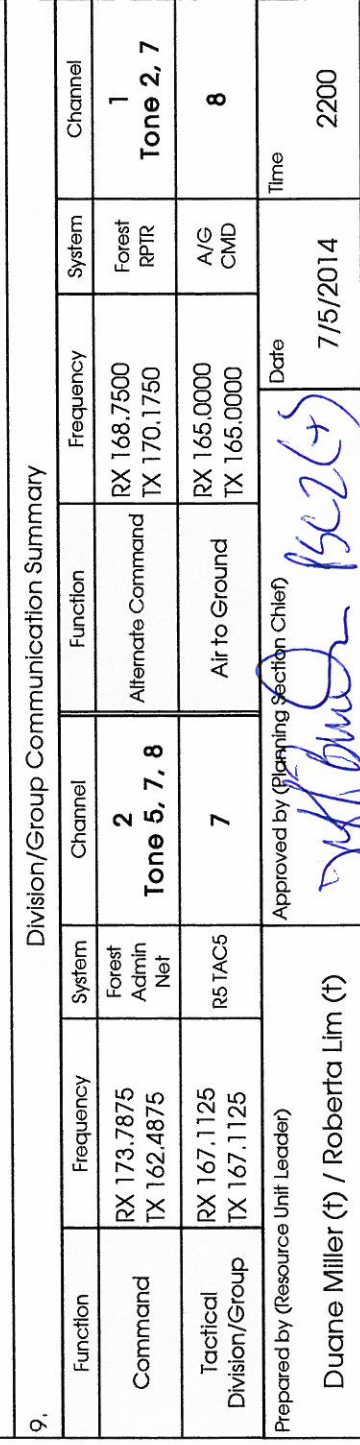 9. Division/Group Communication Summary
Function Frequency System Channel Function Frequency System Channel
Command RX 173.7875 TX 162.4875 Forest Admin Net 2 Tone 5, 7, 8 Alternate Command RX 168.7500 TX 170.1750 Forest RPTR 1 Tone 2, 7
Tactical Division/Group RX 167.1125 TX 167.1125 R5 TAC5 7 Air to Ground RX 165.0000 TX 165.0000 A/G CMD 8
Prepared by (Resource Unit Leader) Approved by (Planning Section Chief) Date Time
Duane Miller (t) / Roberta Lim (t) PSC2(t) 7/5/2014 2200